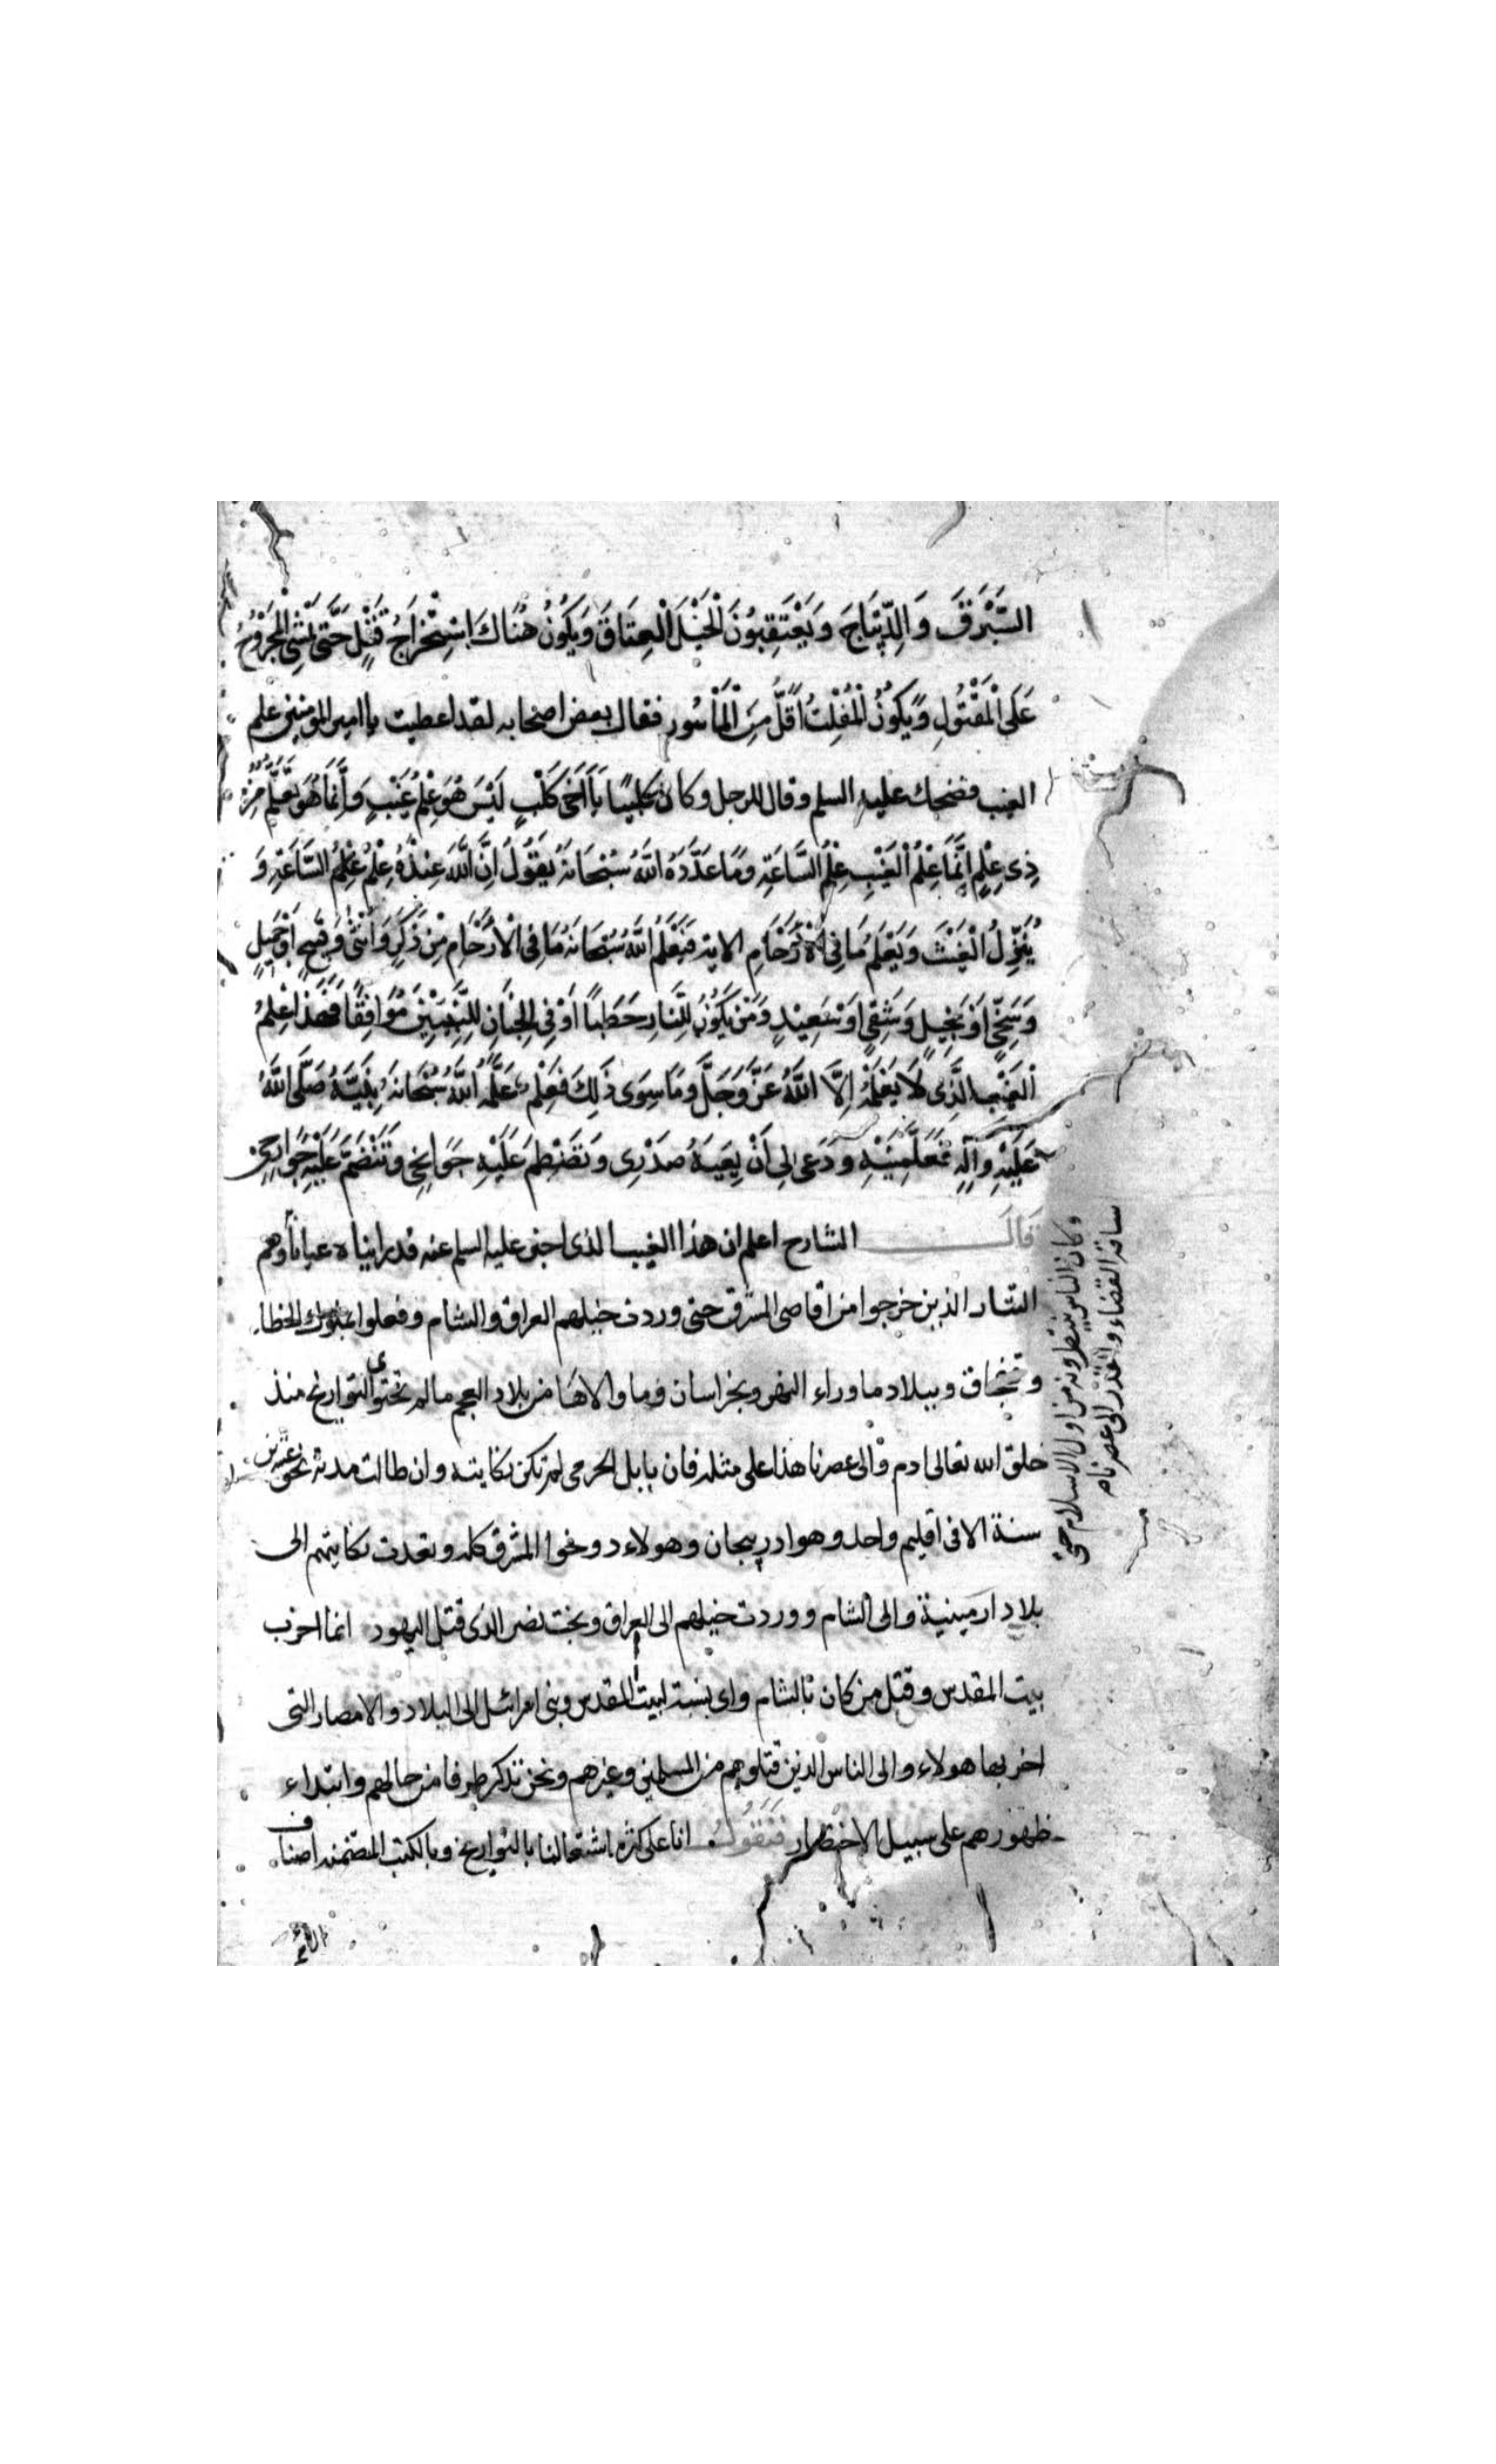 السَّرَقَ وَالدِّيبَاجَ وَيَعْتَقِبُونَ الْخَيْلَ الْعِتَاقَ وَيَكُونُ هُنَاكَ اسْتِحْرَارُ قَتْلٍ حَتَّى يَمْشِيَ الْمَجْرُوحُ
عَلَى الْمَقْتُولِ وَيَكُونُ الْمُفْلِتُ اَقَلَّ مِنَ الْمَأْسُورِ فقال بعض اصحابه لقد اعطيت يا امير المؤمنين علم
الغيب فضحك عليه السلم وقال للرجل وكان كلبيًا يَا اَخَى كَلْبٍ لَيْسَ هُوَ عِلْمُ غَيْبٍ وَاِنَّمَا هُوَ تَعَلُّمٌ مِنْ
ذِي عِلْمٍ اِنَّمَا عِلْمُ الْغَيْبِ عِلْمُ السَّاعَةِ وَمَا عَدَّدَهُ اللَّهُ سُبْحَانَهُ بِقَوْلِهِ اِنَّ اللَّهَ عِنْدَهُ عِلْمُ عِلْمُ السَّاعَةِ وَ
يُنَزِّلُ الْغَيْثَ وَيَعْلَمُ مَا فِي الْاَرْحَامِ الاية فَيَعْلَمُ اللَّهُ سُبْحَانَهُ مَا فِي الْاَرْحَامِ مِنْ ذَكَرٍ وَاُنْثَى وَقَبِيحٍ اَوْ جَمِيلٍ
وَسَخِيٍّ اَوْ بَخِيلٍ وَشَقِيٍّ اَوْ سَعِيدٍ وَمَنْ يَكُونُ لِلنَّارِ حَطَبًا اَوْ فِي الْجِنَانِ لِلنَّبِيِّينَ مُوَافِقًا فَهَذَا عِلْمُ
الْغَيْبِ الَّذِي لَا يَعْلَمُهُ اِلَّا اللَّهُ عَزَّ وَجَلَّ وَمَا سِوَى ذَلِكَ فَعِلْمٌ عَلَّمَهُ اللَّهُ سُبْحَانَهُ نَبِيَّهُ صَلَّى اللَّهُ
عَلَيْهِ وَآلِهِ فَعَلَّمَنِيهِ وَدَعَى لِي اَنْ يَعِيَهُ صَدْرِي وَتَضْطَمَّ عَلَيْهِ جَوَانِحِي وَتَنْضَمَّ عَلَيْهِ جَوَارِحِي
قال الشارح اعلم ان هذا الغيب الذى اخبر عليه السلم عنه قد رايناه عيانا وهم
التتار الذين خرجوا من اقاصى المشرق حتى وردت خيلهم العراق والشام وفعلوا بملوك الخطا
وقفجاق وببلاد ما وراء النهر وبخراسان وما والاها من بلاد العجم ما لم تحتو التواريخ منذ
خلق الله تعالى ادم والى عصرنا هذا على مثله فان بابك الخرمى لم تكن نكايته وان طالت مدته نحو عشرين
سنة الا فى اقليم واحد وهو ادربيجان وهولاء دوخوا المشرق كله وتعدت نكايتهم الى
بلاد ارمينية والى الشام ووردت خيلهم الى العراق وبخت نصر الذى قتل اليهود انما اخرب
بيت المقدس وقتل من كان بالشام واى نسبة لبيت المقدس وبنى اسرائيل الى البلاد والامصار التى
اخربها هولاء والى الناس الذين قتلوهم من المسلمين وغيرهم ونحن نذكر طرفا من حالهم وابتداء
ظهورهم على سبيل الاختصار فَنَقُولُ انا على كثرة اشتغالنا بالتواريخ وبالكتب المتضمنه اصناف
وكان الناس ينتظرونه من اول الاسلام حتى
ساقه القضاء والقدر الى عصرنا